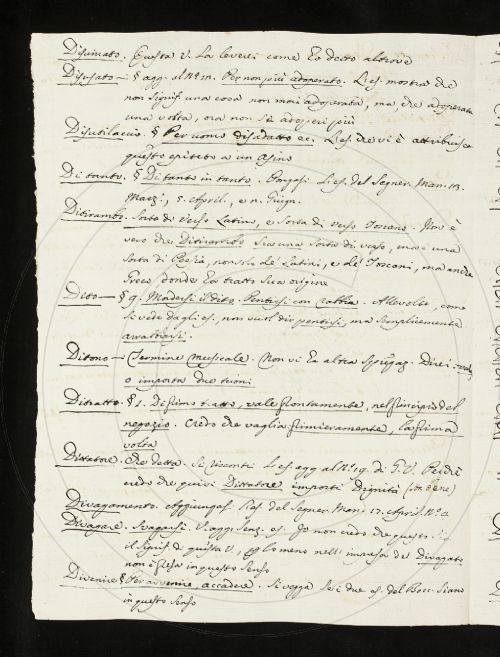 Disumato. Questa V. La leverei come ho detto altrove
Disusato — § agg. al N.º in. Per non più adoperato. L'es. mostra che
non signif. una cosa non mai adoperata, ma che adoperata
una volta, ora non si adoperi più
Disutilaccio. § Per uomo disadatto ec. L'es. che vi è attribuisce
questo epiteto a un asino
Di tanto. § Di tanto in tanto. Pongasi L'es. del Segner. Man. 13.
Marz., 5. April., e 11. Giugn.
Ditirambo. Sorta di Verso Latino, e Sorta di Verso Toscano. Non è
vero che Ditirambo sia una Sorta di verso, ma è una
Sorta di Poesia, non sol de' Latini, e de' Toscani, ma anche
Greci donde ha tratto sua origine
Dito — § 9. Mordersi il dito. Pentirsi con rabbia. Alle volte, come
si vede dagli es., non vuol dir pentirsi, ma semplicemente
arrabbiarsi.
Ditono — Termine musicale. Non vi ha altra spiegaz. Direi
o importa due tuoni
Ditratto. § 1. Di primo tratto, vale prontamente, nel principio del
negozio. Credo che vaglia primieramente, la prima
volta
Dittatore. Che detta. Si riscontri L'es. agg. al N.º 19. di G. V. Perchè
credo che quivi Dittatore importi Dignità
Divagamento. Aggiungasi. Es. del Segner. Man. 17. April. N.º 2
Divagare. Svagarsi. V. agg. Senz. es. Io non credo che questo
il signif. di questa V., almeno nell' impresa del Divagato
non è presa in questo senso
Divenire § Per avvenire, accadere. Si vegga se i due es. del Bocc. siano
in questo senso